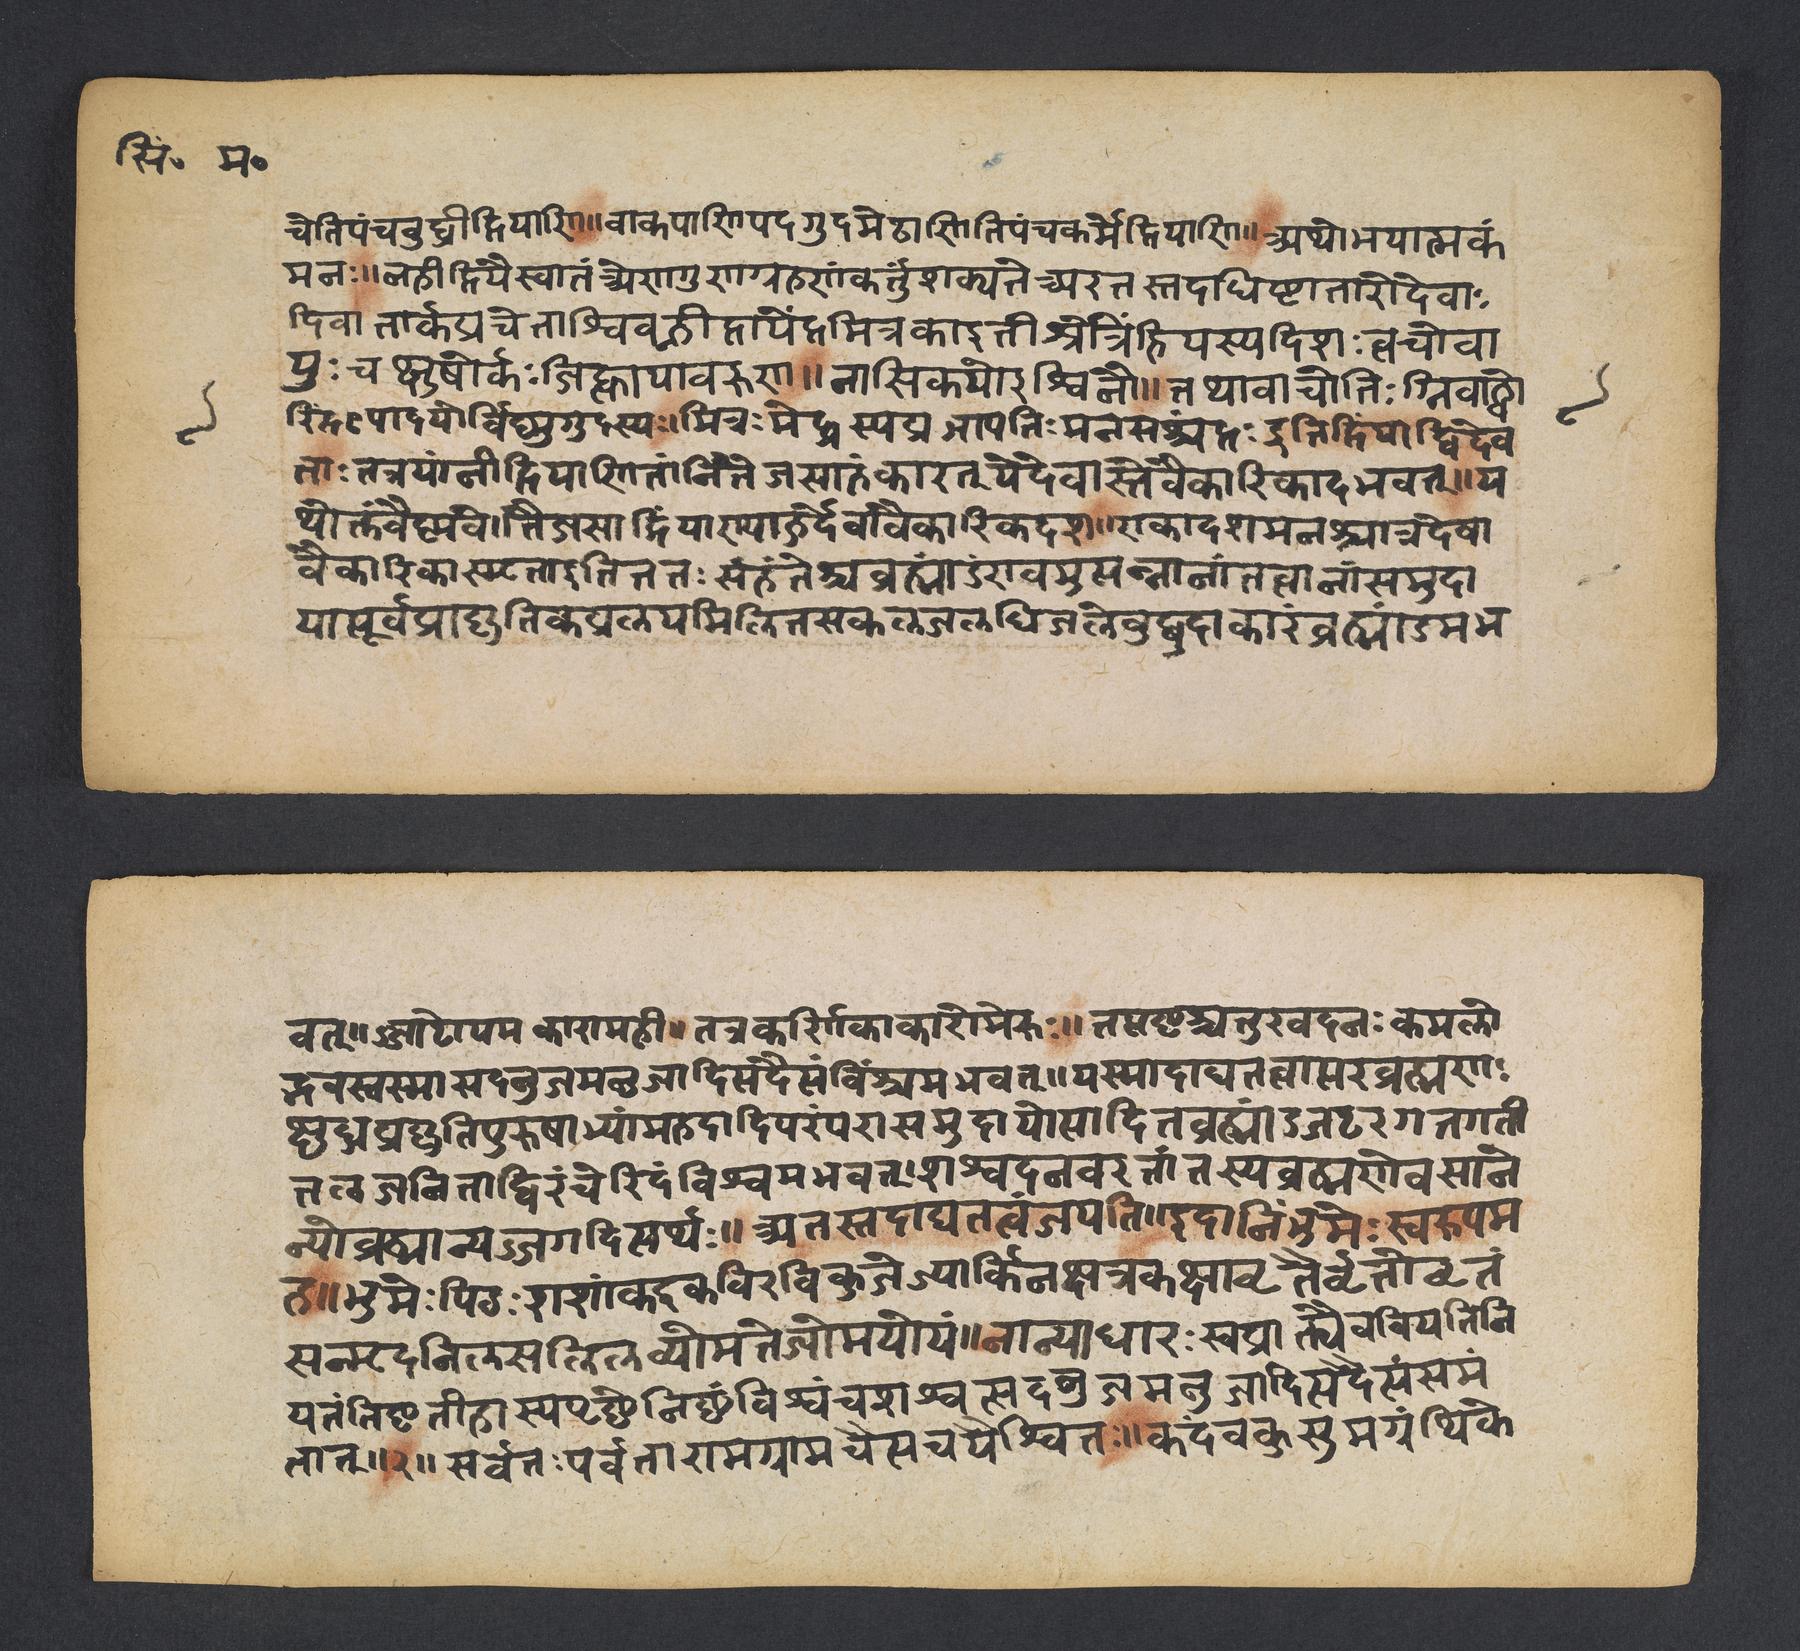 सिं॰ म॰
चेतिपंचबुद्धींद्रियाणि॥ वाक्पाणिपदगुदमेढाणितिपंचकर्मेंद्रियाणि॥ अथोभयात्मकं
मनः॥ नहींद्रियैस्वातंत्र्येणगुणग्रहणंकर्त्तुंशक्यते अरतस्तदधिष्टातारोदेवाः
दिवातार्कप्रचेताश्विवह्नीद्रापेंद्रमित्रकाइती श्रोत्रेंहियस्यदिशः त्वचोवा
युः चक्षुषोर्कः जिह्वायावरुण॥ नासिकयोरश्विनौ॥ तथावाचोतिः ग्निवाह्वो
रिंद्रःपादयोर्विष्णुगुदस्यः॥ मित्रः मेढ्रस्यप्रजापतिः मनसश्चंद्रः इतिद्रिंयाद्विदेव
ताः तत्रयांनींद्रियाणितांनितेजसाहंकारत् येदेवास्तेवैकारिकादभवत्॥ य
थोक्तंवैष्णवे। तैजसाद्रिंयाण्याहुर्देवावैकारिकदश॥ एकादशमनश्चात्रदेवा
वैकारिकास्मृताइतिततः संहंतेश्चव्रह्मांडंएवमुत्पन्नानांतत्वानांसमुदा
यात्पूर्वप्राकृतिकप्रलयमिलितसकलजलधिजलेबुद्बुदाकारंव्रह्मांडमभ
वत्॥ आटोपमकारामही॥ तत्रकर्णिकाकारोमेरुः॥ तत्पृष्टश्चतुरवदनः कमलो
द्भवस्तस्मासदनुजमनुजादिसंदैसंविंश्चमभवत्॥ यस्मादाद्यतत्वात्परव्रह्मणः
क्षुब्धप्रकृतिपुरुषाभ्यांमहदादिपरंपरासमुदायोत्पादितव्रह्मांडजठरगतगती
तलजनिताद्विरंचेरिदंविश्वमभवत्। शश्वदनवरतांतस्यव्रह्मणोवसाने
न्योव्रह्मान्यज्जगदित्यर्थः॥ अतस्तदाद्यतत्वंजयति॥ इदानिंभुमेः स्वरूपम
ह॥ भुमेः पिंडः शशांकज्ञकविरविकुजेज्यार्किनक्षत्रकक्षावृतैर्वृत्तोवृतं
सन्मृदनिलसलिलव्योमतेजोमयोयं॥ नान्याधारः स्वप्राक्त्यैववियतिनि
यतंतिष्टतीहास्यपृष्टेनिष्टंविश्वंचशश्वत्सदनुजमनुजादित्यदैत्यंसमं
तात्॥२॥ सर्वतःपर्वतारामग्रामचैत्यचयेश्वितः॥ कदंवकुसुमग्रंथिके